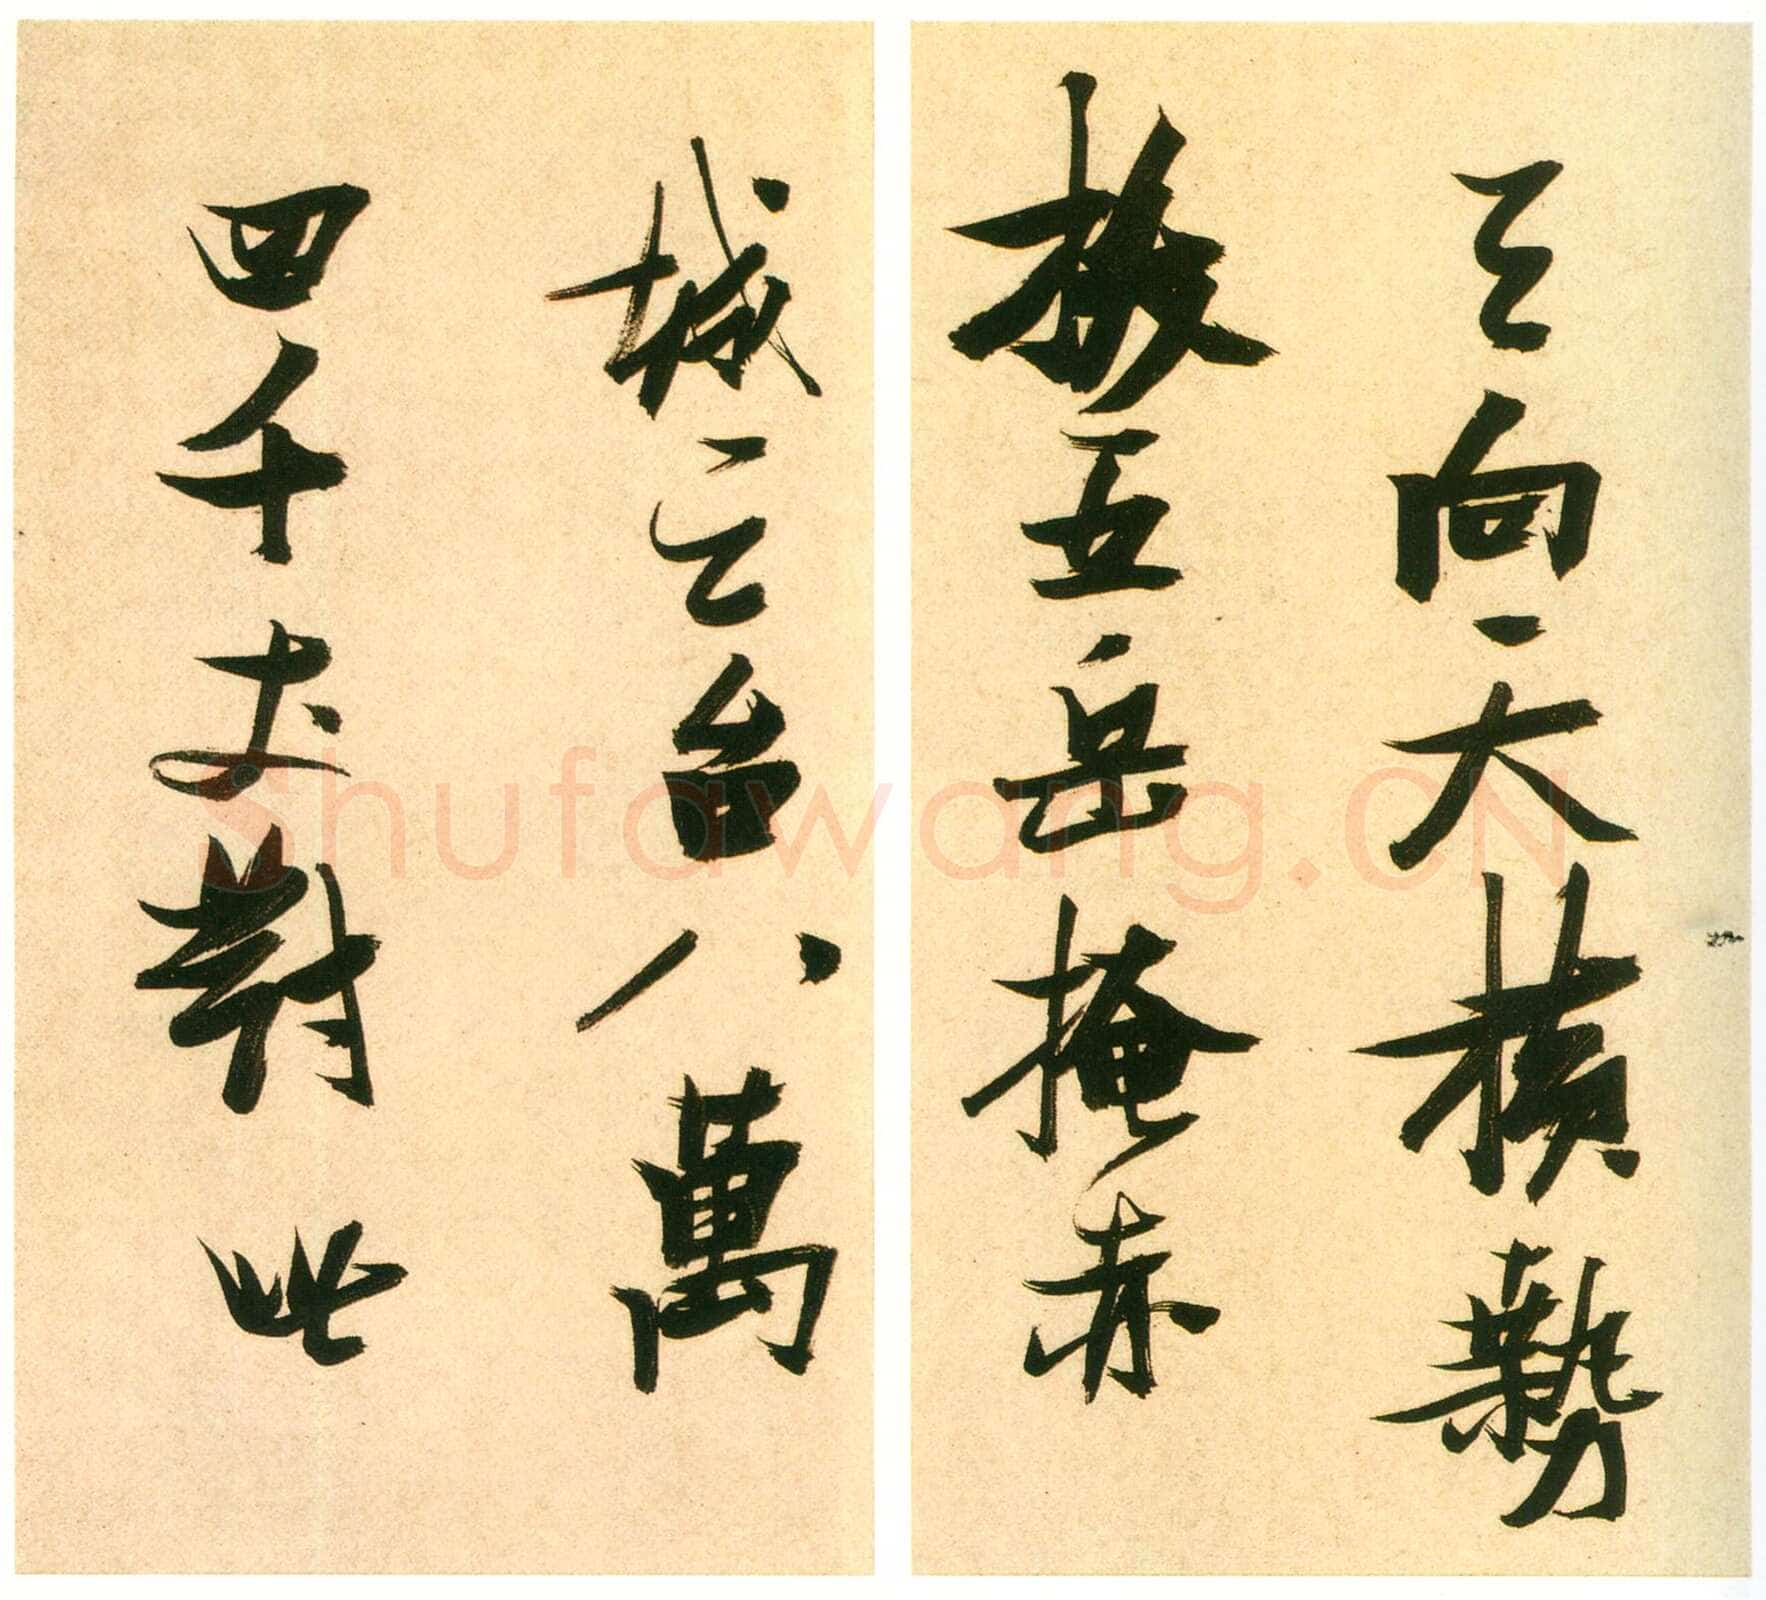 天向天橫勢
拔五岳掩赤
城天台八萬
四千丈對此
Shufawang.CN